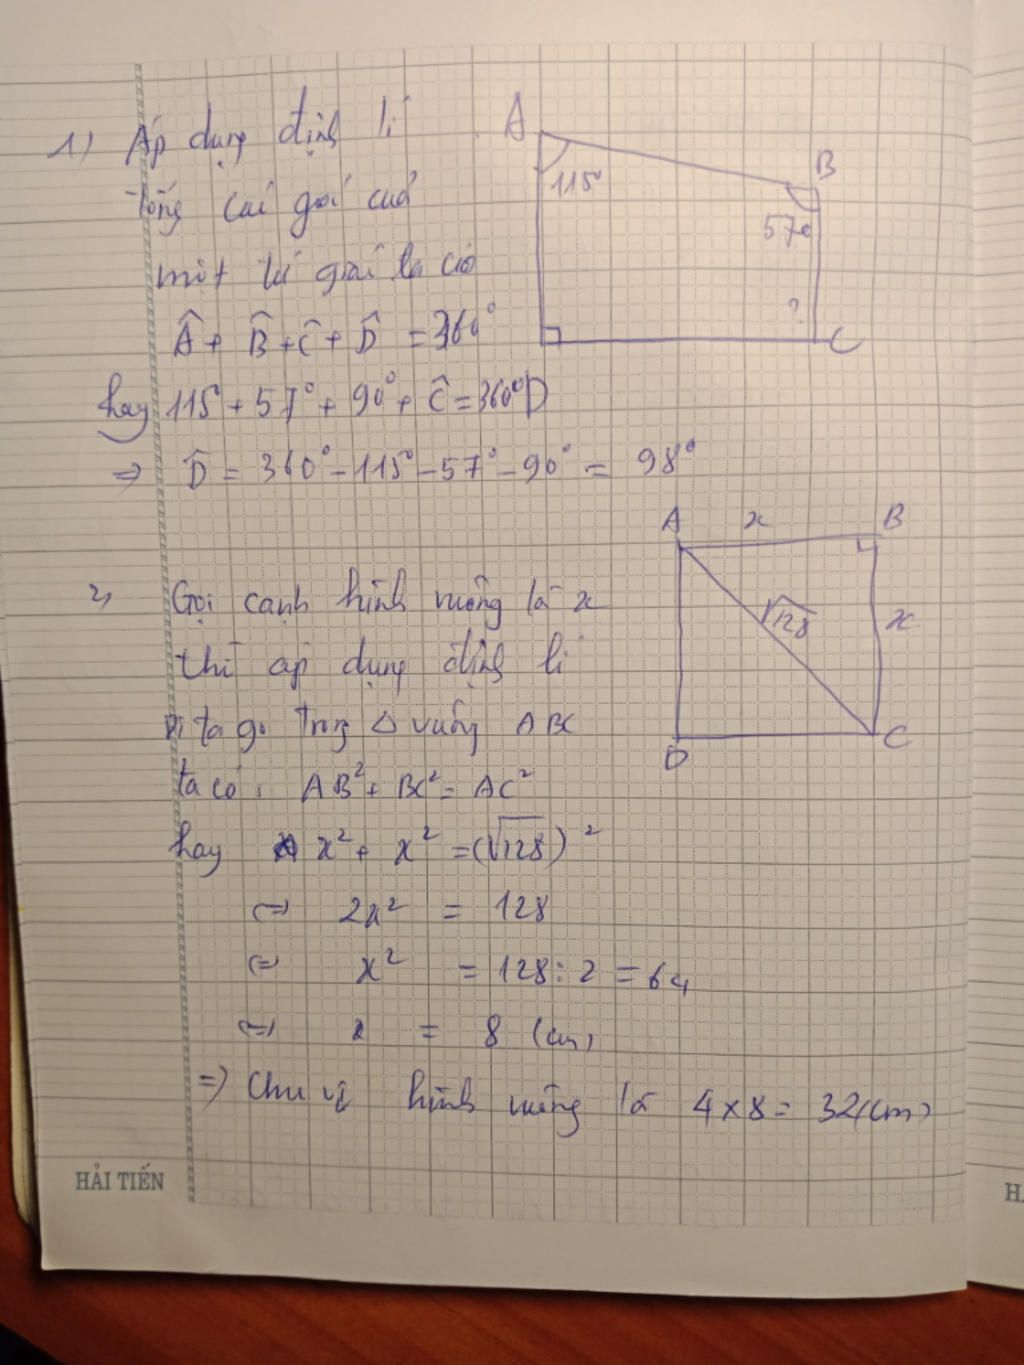 1) Áp dụng định lí
tổng các góc của
một tứ giác ta có
Â + B̂ + Ĉ + D̂ = 360°
hay 115° + 57° + 90° + Ĉ = 360°
=> D̂ = 360° - 115° - 57° - 90° = 98°
A
B
115°
57°
?
C
D
2,
Gọi cạnh hình vuông là x
thì áp dụng định lí
Pi ta go trong Δ vuông ABC
ta có: AB² + BC² = AC²
hay x² + x² = (√128)²
<=> 2x² = 128
<=> x² = 128 : 2 = 64
<=> x = 8 (cm)
=> Chu vi hình vuông là 4 x 8 = 32 (cm)
A x B
√128
x
D
C
HẢI TIẾN